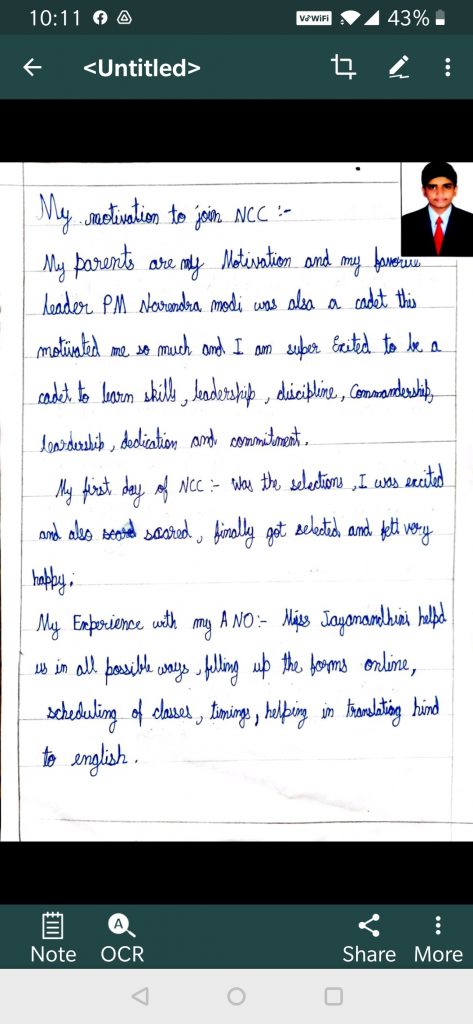 10:11
VoWiFi
43%
<Untitled>
My motivation to join NCC :-
My parents are my Motivation and my favorite
leader PM Narendra modi was also a cadet this
motivated me so much and I am super Exited to be a
cadet to learn skills, leadership, discipline, Commandership,
leardership, dedication and commitment.
My first day of NCC :- Was the selections, I was excited
and also scared, finally got selected and felt very
happy.
My Experience with my ANO:- Miss Jayanandhini helpd
us in all possible ways, filling up the forms online,
scheduling of classes, timings, helping in translating hind
to english.
Note OCR Share More